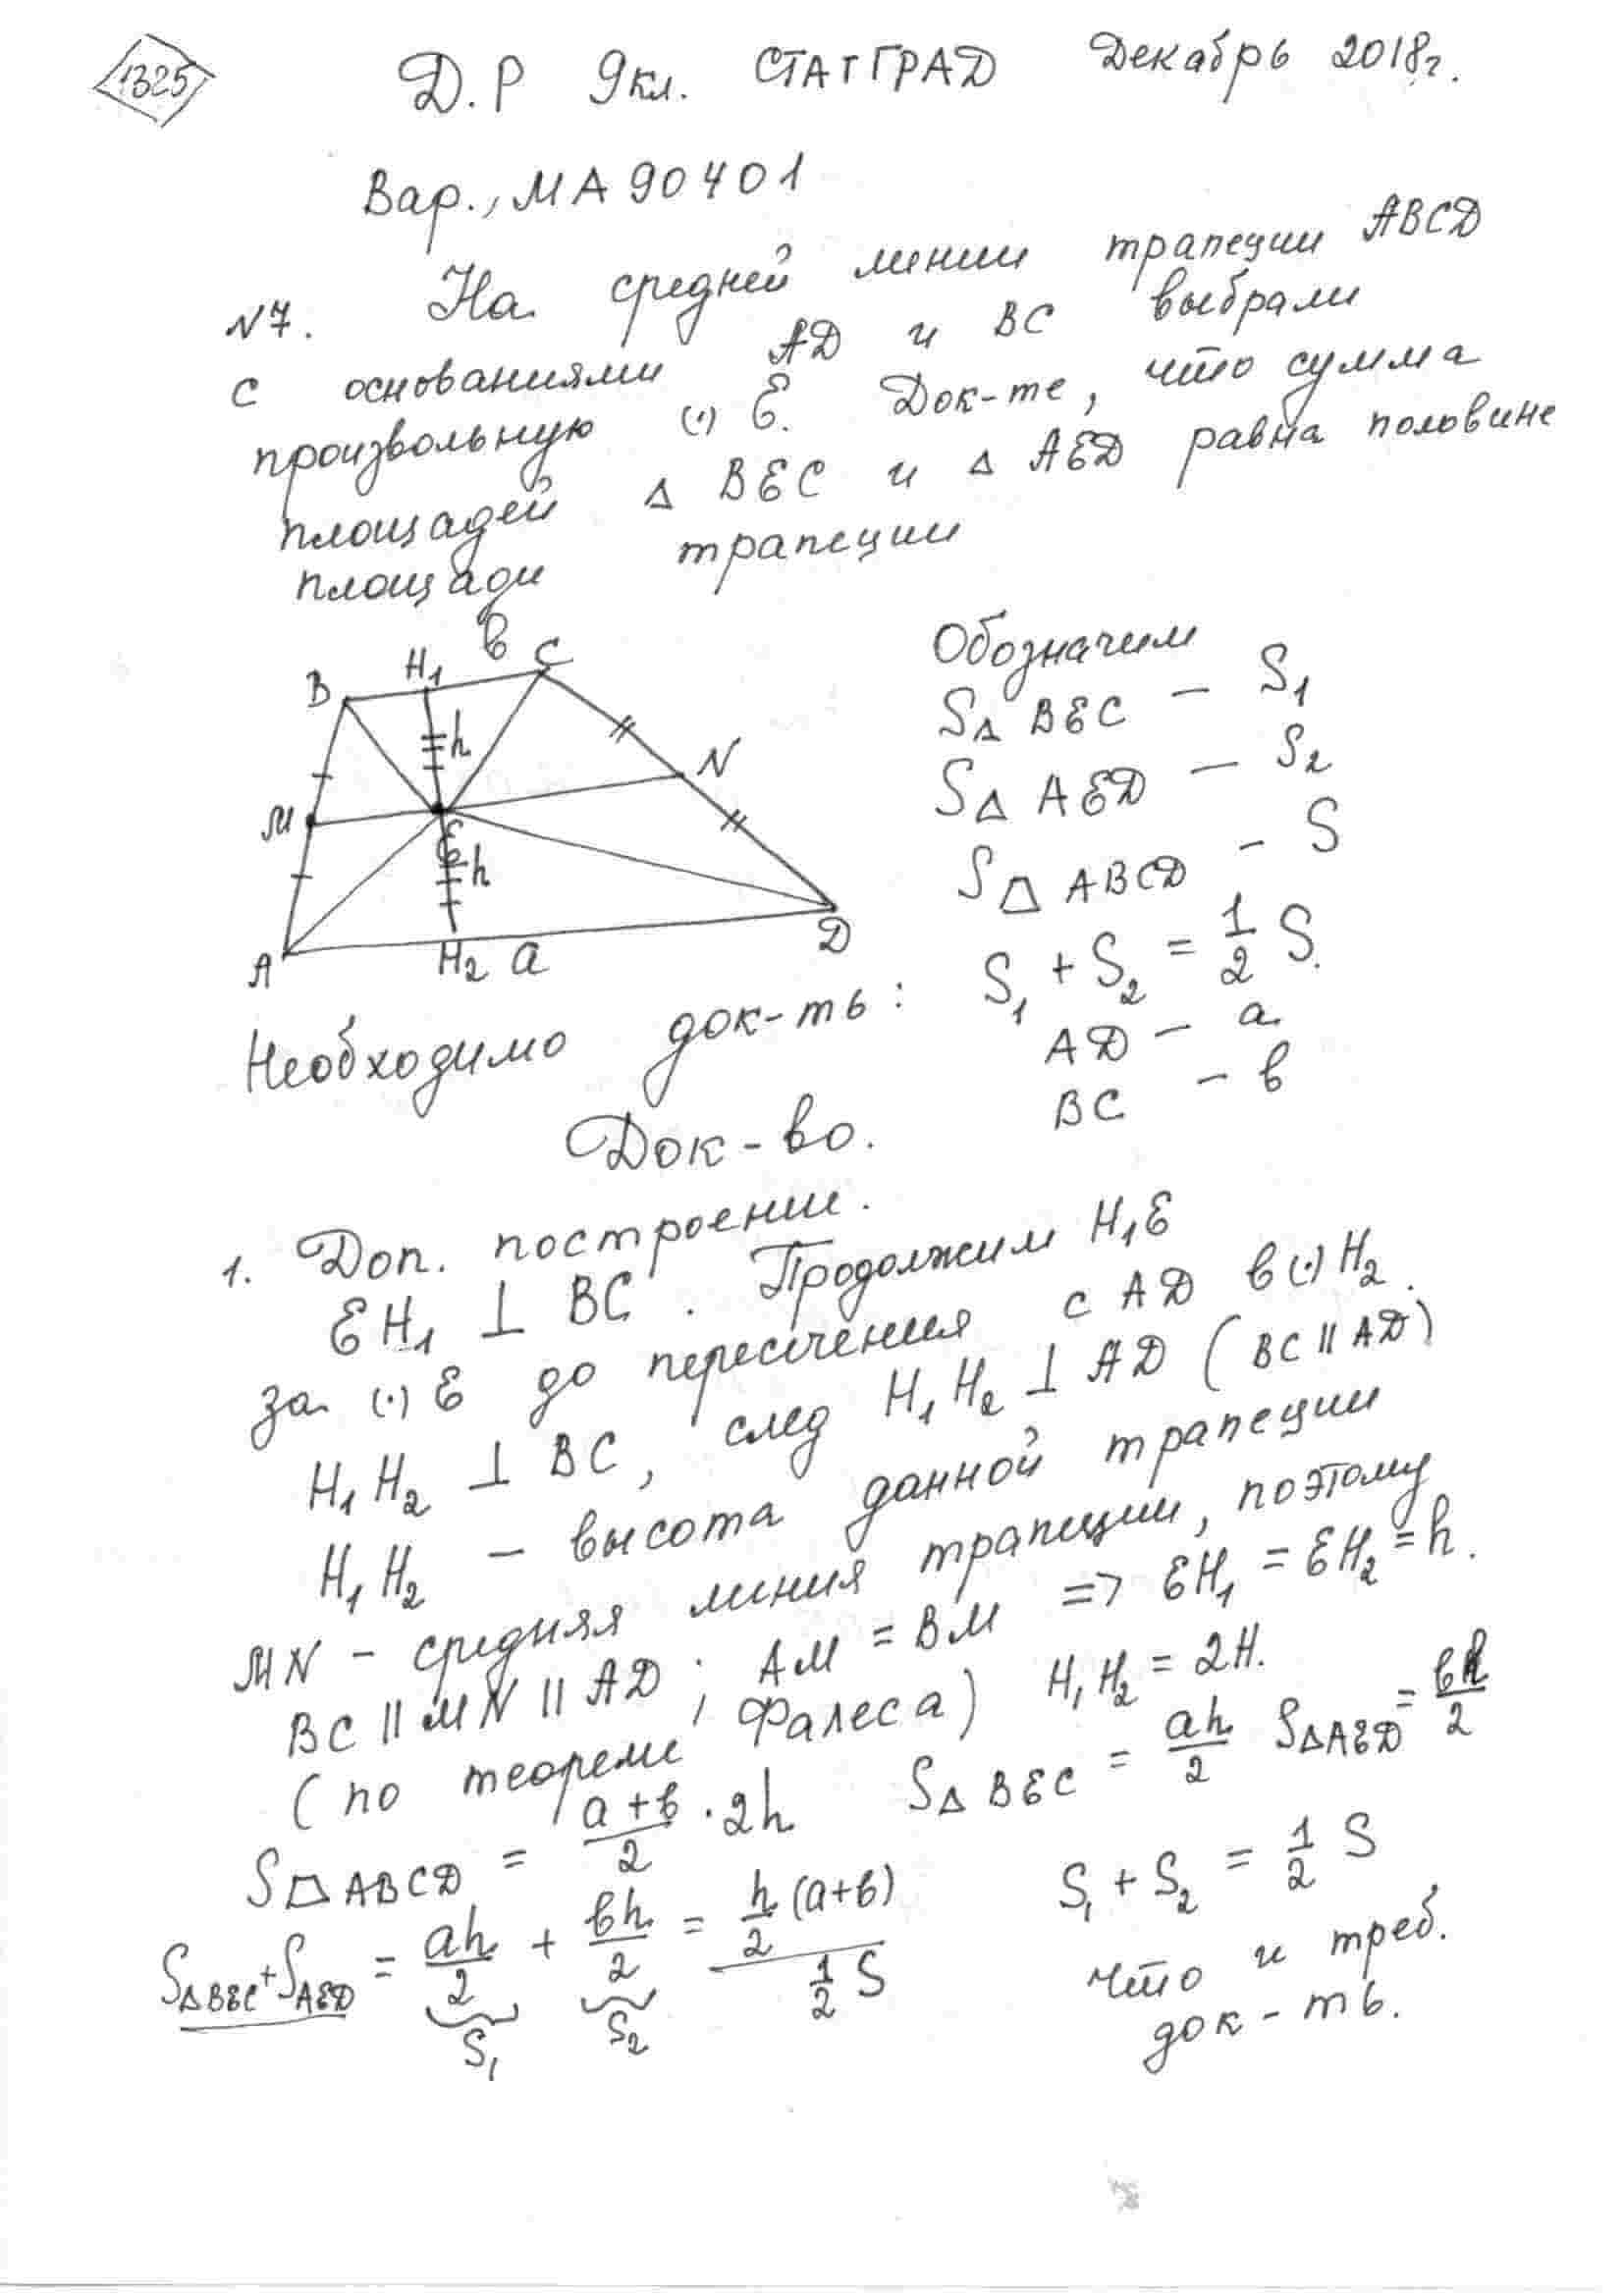 1325
Д.Р 9кл. СТАТГРАД Декабрь 2018г.
Вар., МА90401
N7. На средней линии трапеции ABCD
с основаниями AD и BC выбрали
произвольную (·) E. Док-те, что сумма
площадей △ BEC и △ AED равна половине
площади трапеции
B H₁ в C
h
M E N
h
A H₂ a D
Обозначим
S△ BEC — S₁
S△ AED — S₂
S⏢ ABCD — S
Необходимо док-ть: S₁ + S₂ = 1/2 S.
AD — a
BC — в
Док-во.
1. Доп. построении.
EH₁ ⊥ BC. Продолжим H₁E
за (·) E до пересечения с AD в (·) H₂.
H₁H₂ ⊥ BC, след H₁H₂ ⊥ AD (BC || AD)
H₁H₂ — высота данной трапеции
MN — средняя линия трапеции, поэтому
BC || MN || AD; AM = BM => EH₁ = EH₂ = h.
(по теореме Фалеса) H₁H₂ = 2H.
S⏢ ABCD = (a+в)/2 · 2h S△ BEC = ah/2 S△AED = вh/2
S△BEC + SAED = ah/2 + вh/2 = h/2 (a+в) S₁ + S₂ = 1/2 S
S₁ S₂ 1/2 S
что и треб.
док-ть.